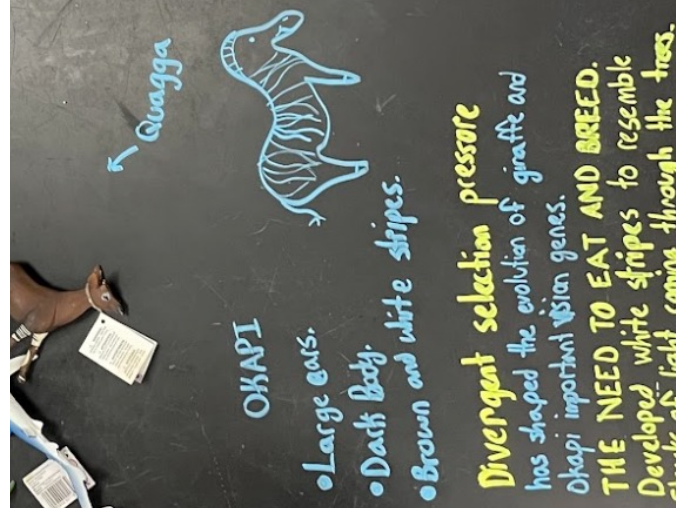 Quagga
OKAPI
•Large ears.
•Dark Body.
•Brown and white stripes.
Divergent selection pressure
has shaped the evolution of giraffe and
Okapi important vision genes.
THE NEED TO EAT AND BREED.
Developed white stripes to resemble
of light coming through the trees.